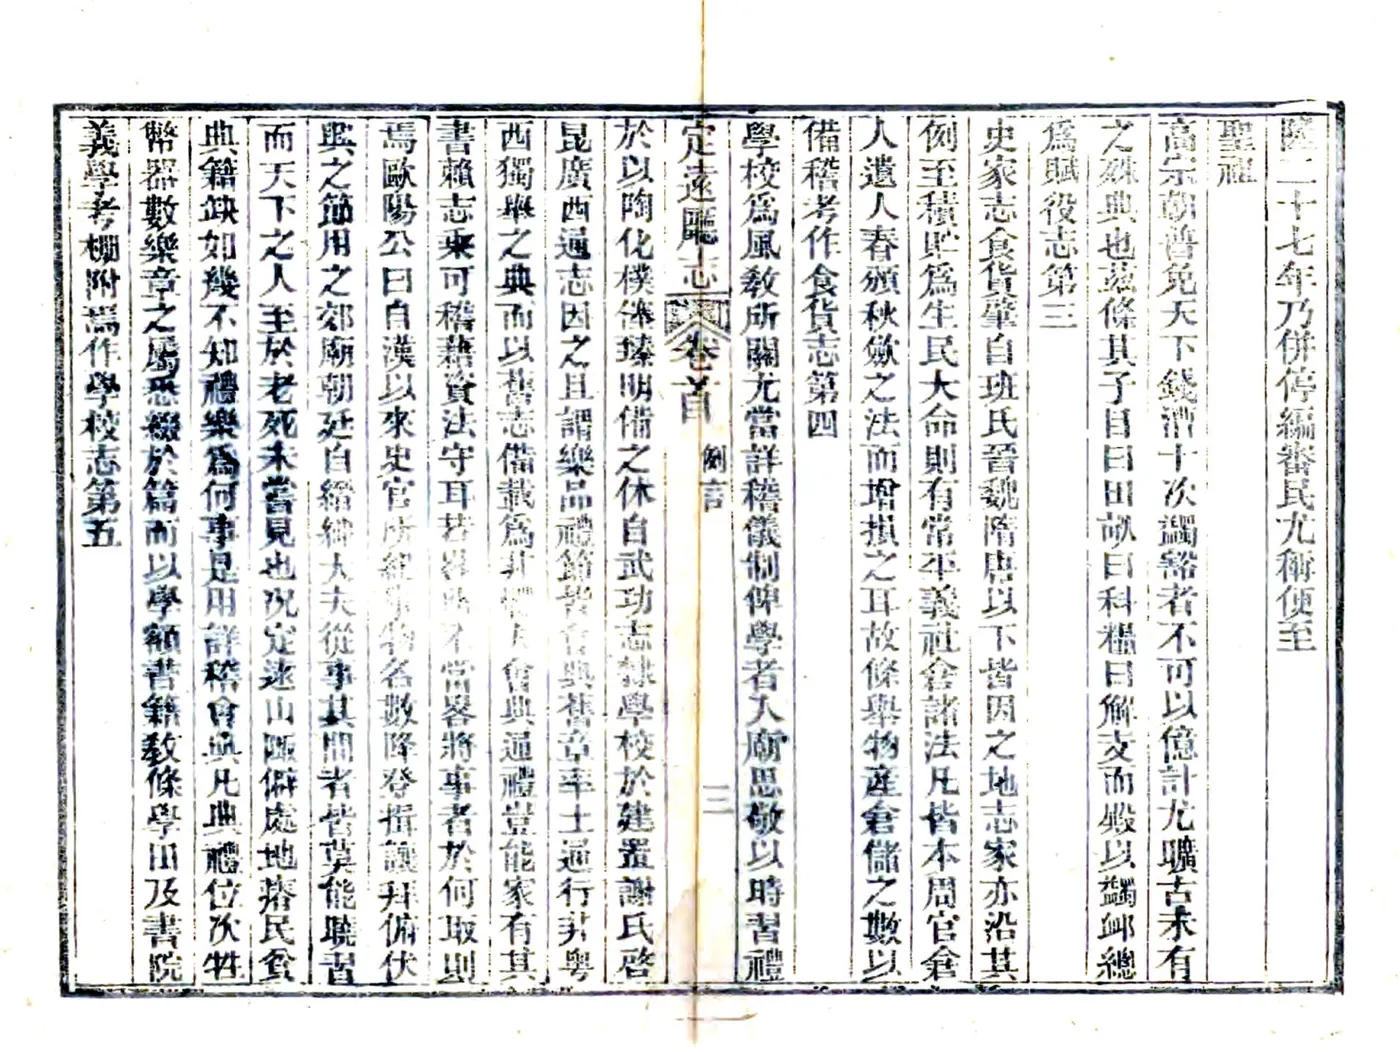 隆二十七年乃併停編審民尤稱便至
聖祖
高宗朝普免天下錢漕十次蠲豁者不可以億計尤曠古未有
之殊典也茲條其子目曰田畝曰科糧曰解支而殿以蠲卹總
為賦役志第三
史家志食貨肇自班氏晉魏隋唐以下皆因之地志家亦沿其
例至積貯為生民大命則有常平義社倉諸法凡皆本周官倉
人遺人春頒秋斂之法而增損之耳故條舉物產倉儲之數以
備稽考作食貨志第四
學校為風教所關尤當詳稽儀制俾學者入廟思敬以時習禮
定遠廳志 卷首 例言 三
於以陶化樸 臻明備之休自武功志隸學校於建置謝氏啓
昆廣西通志因之且謂樂品禮節皆會典舊章率土通行非粵
西獨舉之典而以舊志備載為非體夫會典通禮豈能家有其
書賴志乘可稽藉資法守耳若 不當畧將事者於何取則
焉歐陽公曰自漢以來史官所紀事物名數降登揖讓拜俯伏
興之節用之郊廟朝廷自縉紳大夫從事其間者皆莫能曉習
而天下之人至於老死未嘗見也况定遠山陬僻處地瘠民貧
典籍缺如幾不知禮樂為何事是用詳稽會典凡典禮位次牲
幣器數樂章之屬悉綴於篇而以學額書籍教條學田及書院
義學考棚附焉作學校志第五